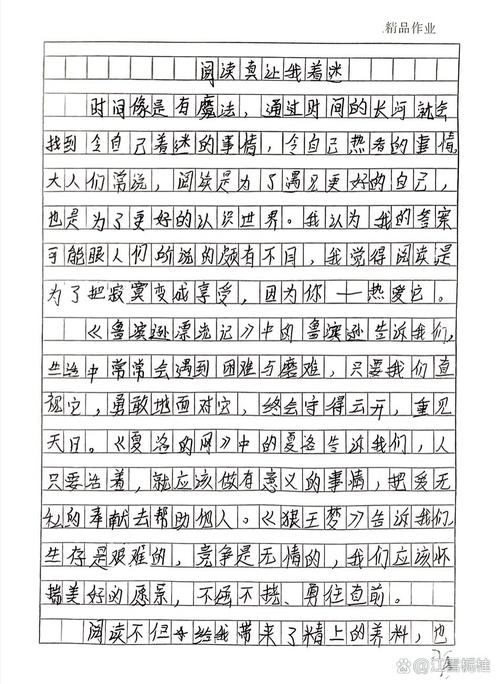 精品作业
阅读真让我着迷
时间像是有魔法，通过时间的长河就会
找到令自己着迷的事情，令自己热爱的事情。
大人们常说，阅读是为了遇见更好的自己，
也是为了更好的认识世界。我认为我的答案
可能跟人们所说的颇有不同，我觉得阅读是
为了把寂寞变成享受，因为你一热爱它。
《鲁滨逊漂流记》中的鲁滨逊告诉我们，
生活中常常会遇到困难与磨难，只要我们直
视它，勇敢地面对它，终会守得云开，重见
天日。《夏洛的网》中的夏洛告诉我们，人
只要活着，就应该做有意义的事情，把爱无
私的奉献去帮助他人。《狼王梦》告诉我们，
生存是艰难的，竞争是无情的，我们应该怀
揣美好的愿景，不屈不挠、勇往直前。
阅读不但给我带来了精上的养料，也
江笙栀桂